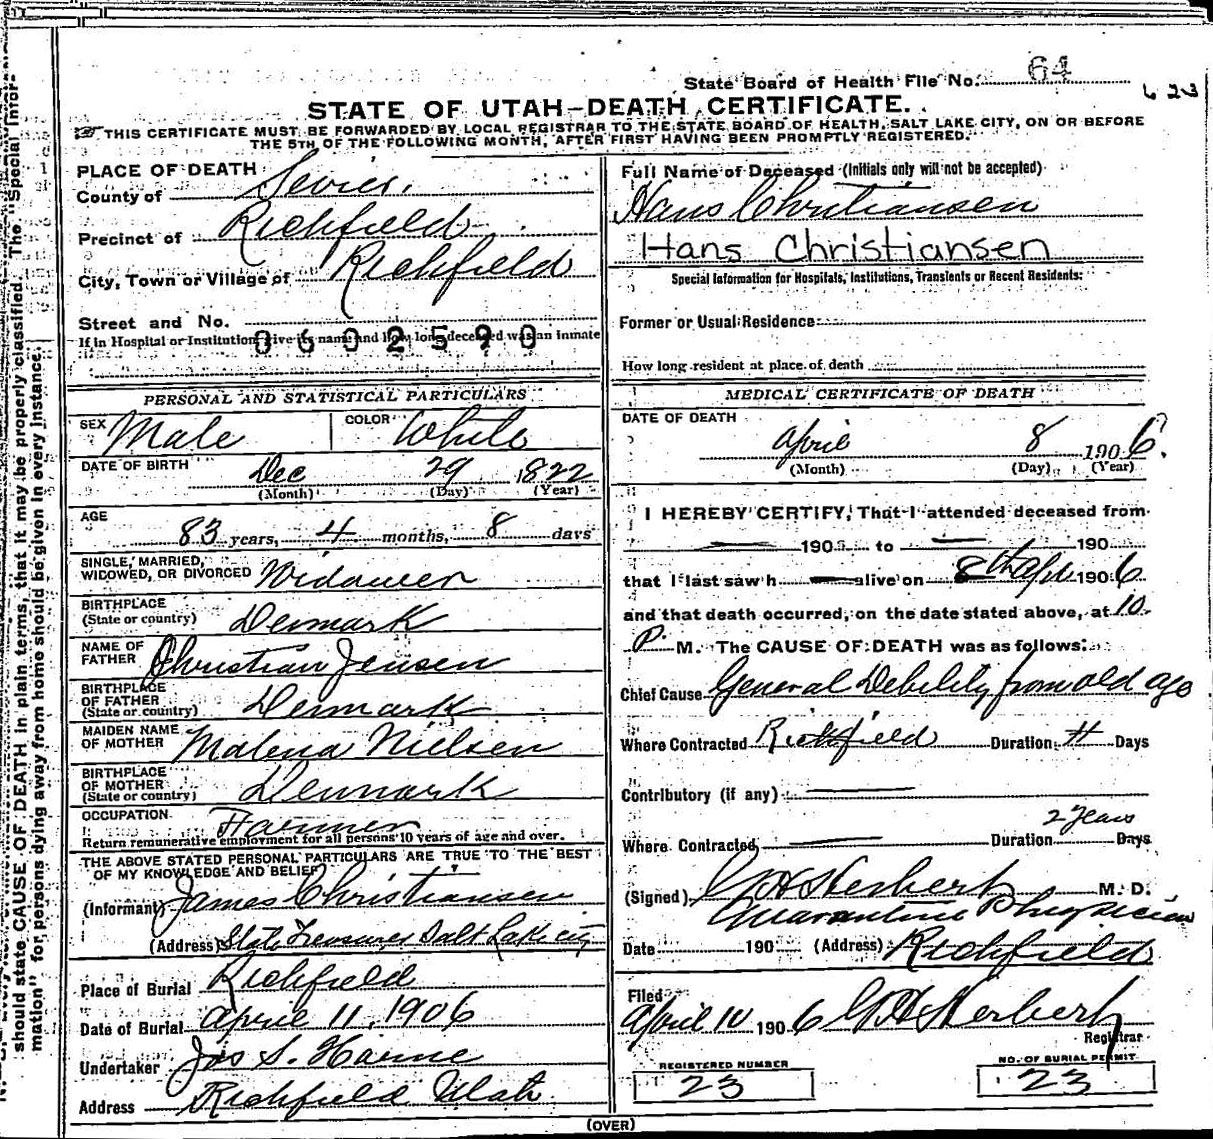 State Board of Health File No. 64
6 23
STATE OF UTAH—DEATH CERTIFICATE.
THIS CERTIFICATE MUST BE FORWARDED BY LOCAL REGISTRAR TO THE STATE BOARD OF HEALTH, SALT LAKE CITY, ON OR BEFORE
THE 5TH OF THE FOLLOWING MONTH, AFTER FIRST HAVING BEEN PROMPTLY REGISTERED.
PLACE OF DEATH
County of Sevier.
Precinct of Richfield
City, Town or Village of Richfield
Street and No.
If in Hospital or Institution give its name and how long deceased was an inmate
0602590
PERSONAL AND STATISTICAL PARTICULARS
SEX Male COLOR White
DATE OF BIRTH Dec 29 1822
(Month) (Day) (Year)
AGE
83 years, 4 months, 8 days
SINGLE, MARRIED,
WIDOWED, OR DIVORCED Widower
BIRTHPLACE
(State or country) Denmark
NAME OF
FATHER Christian Jensen
BIRTHPLACE
OF FATHER
(State or country) Denmark
MAIDEN NAME
OF MOTHER Malena Nielsen
BIRTHPLACE
OF MOTHER
(State or country) Denmark
OCCUPATION Farmer
Return remunerative employment for all persons 10 years of age and over.
THE ABOVE STATED PERSONAL PARTICULARS ARE TRUE TO THE BEST
OF MY KNOWLEDGE AND BELIEF
(Informant) James Christiansen
(Address) State Treasurer Salt Lake City
Place of Burial Richfield
Date of Burial April 11, 1906
Undertaker Jos S. Horne
Address Richfield Utah
Full Name of Deceased (Initials only will not be accepted)
Hans Christiansen
Hans Christiansen
Special Information for Hospitals, Institutions, Transients or Recent Residents:
Former or Usual Residence
How long resident at place of death
MEDICAL CERTIFICATE OF DEATH
DATE OF DEATH
April 8 1906.
(Month) (Day) (Year)
I HEREBY CERTIFY, That I attended deceased from
— 190 to — 190
that I last saw h — alive on 8th Apl 1906
and that death occurred, on the date stated above, at 10
P. M. The CAUSE OF DEATH was as follows:
Chief Cause General Debility from old age
Where Contracted Richfield Duration Days
Contributory (if any)
2 years
Where Contracted Duration Days
(Signed) G H Herbert M. D.
Quarantine Physician
Date 190 (Address) Richfield
Filed
April 10 1906 G H Herbert
Registrar
REGISTERED NUMBER
23
NO. OF BURIAL PERMIT
23
(OVER)
should state CAUSE OF DEATH in plain terms, that it may be properly classified. The "Special Infor-
mation" for persons dying away from home should be given in every instance.